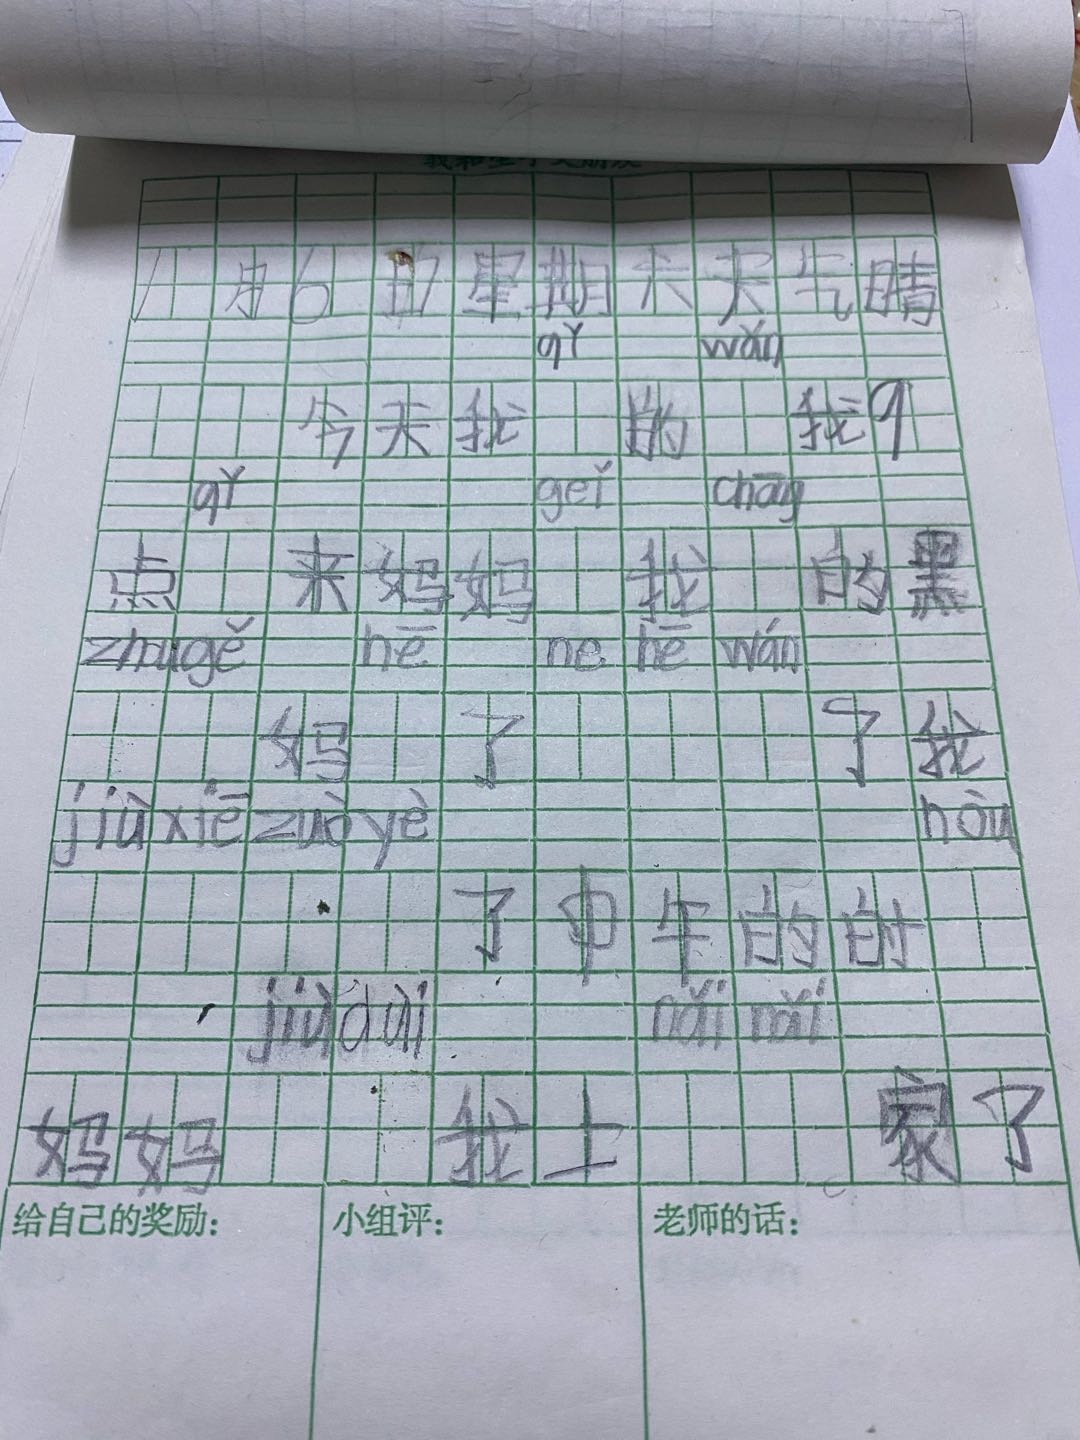 1月6日星期六天气晴
qǐ wǎn
今天我 的 我9
qǐ geǐ chāng
点 来妈妈 我 的黑
zhugě hē ne hē wán
妈 了 了我
jiù xiē zuò yè hòu
了中午的时
jiù dài nǎi nǎi
妈妈 我上 家了
给自己的奖励： 小组评： 老师的话：